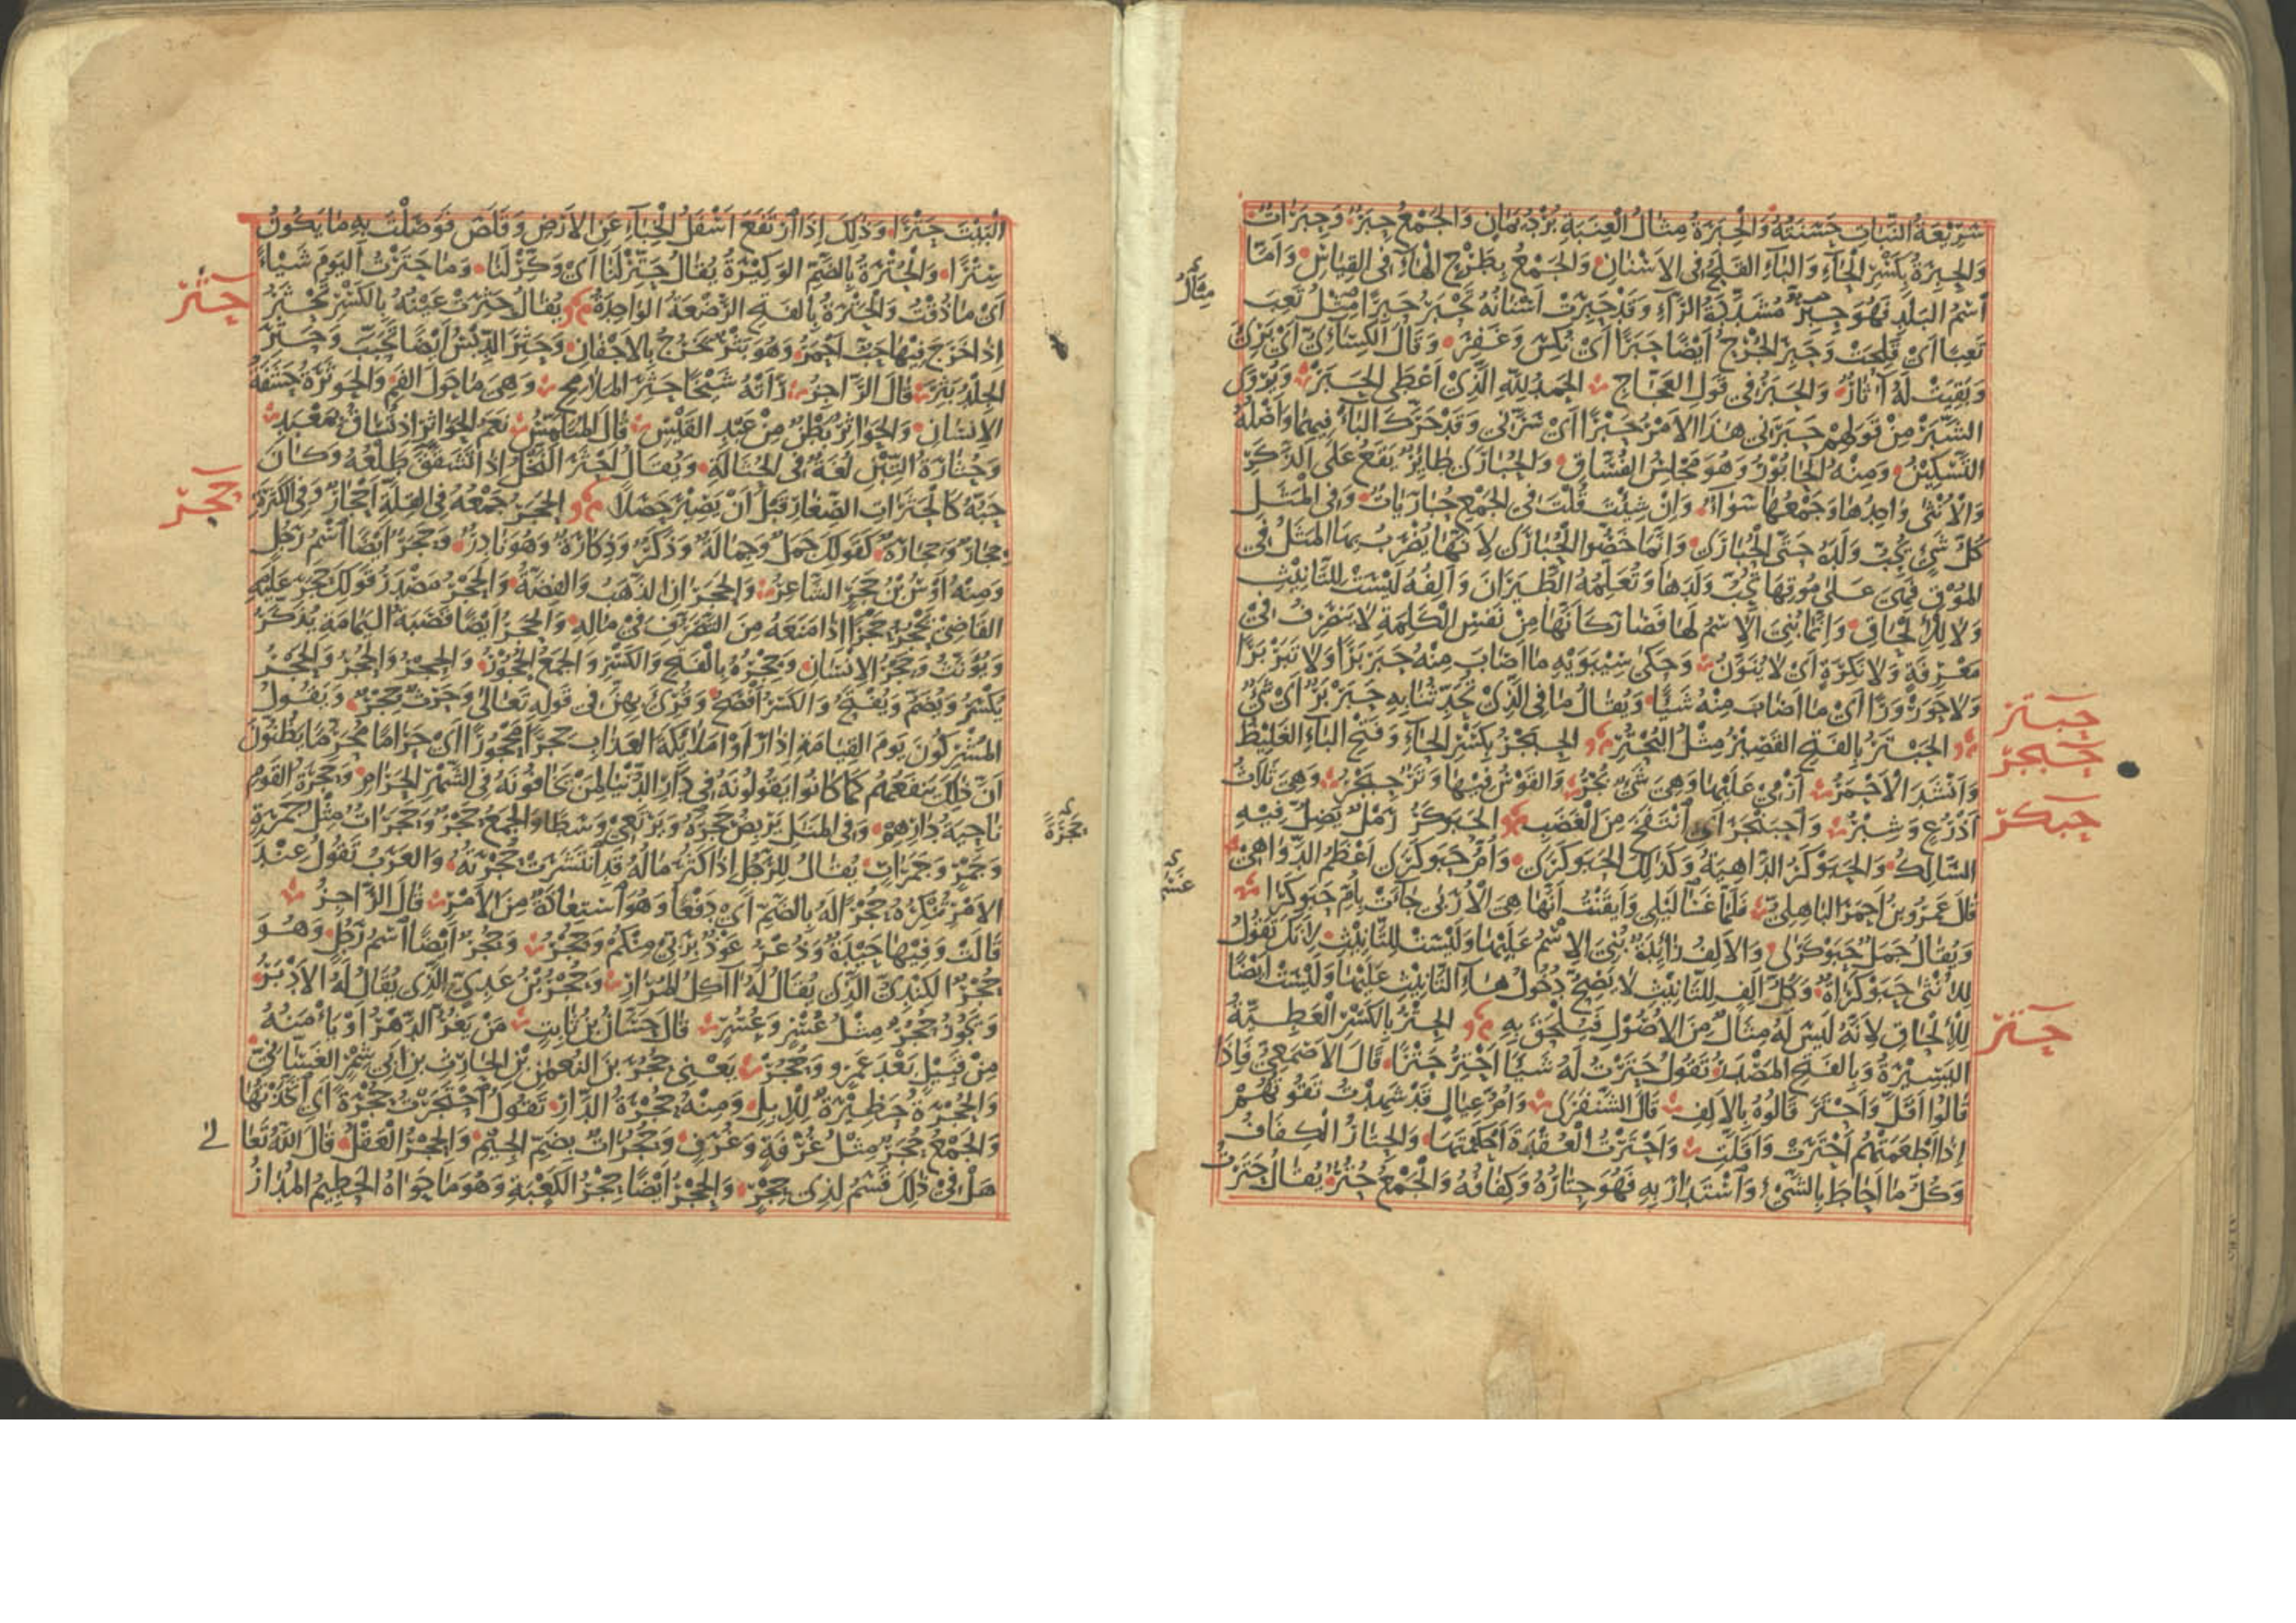 سَرِيْعَةُ النَّبَاتِ حَسَنَتُهُ وَالْحِبَرَةُ مِثَالُ الْعِنَبَةِ بُرْدٌ يَمَانٍ وَالجَمْعُ حِبَرٌ وَحِبَرَاتٌ
وَالْحِبِرَةُ بِكَسْرِ الْحَاءِ وَالْبَاءِ القَلَحُ فِي الاَسْنَانِ وَالجَمْعُ بِطَرْحِ الْهَاءِ فِي القِيَاسِ وَاَمَّا
مِثَالُ
اسْمُ البَلَدِ فَهُوَ حِبِرٌّ مُشَدَّدَةُ الرَّاءِ وَقَدْ حَبِرَتْ اَسْنَانُهُ تَحْبَرُ حَبَرًا مِثْلُ تَعِبَ
تَعَبًا اَيْ قَلِحَتْ وَحَبِرَ الجُرْحُ اَيْضًا حَبَرًا اَيْ نُكِسَ وَغَفِرَ وَقَالَ الكِسَائِيُّ اَيْ بَرِئَ
وَبَقِيَتْ لَهُ اٰثَارٌ وَالحَبَرُ فِي قَوْلِ العَجَّاجِ الحَمْدُ لِلّٰهِ الَّذِيْ اَعْطَى الحَبَرْ وَيُرْوٰى
الشَّبَرْ مِنْ قَوْلِهِمْ حَبَرَنِي هٰذَا الاَمْرُ حَبْرًا اَيْ سَرَّنِي وَقَدْ حَرَّكَ البَاءَ فِيهِمَا وَاَصْلُهُ
التَّسْكِيْنُ وَمِنْهُ الحَابُوْرُ وَهُوَ مَجْلِسُ الفُسَّاقِ وَالحُبَارٰى طَائِرٌ يَقَعُ عَلَى الذَّكَرِ
وَالْاُنْثٰى وَاحِدُهَا وَجَمْعُهَا سَوَاءٌ وَاِنْ شِئْتَ قُلْتَ فِي الجَمْعِ حُبَارَيَاتٌ وَفِي المَثَلِ
كُلُّ شَيْءٍ يُحِبُّ وَلَدَهُ حَتّٰى الْحُبَارٰى وَاِنَّمَا خَصُّوا الْحُبَارٰى لِاَنَّهَا يُضْرَبُ بِهَا المَثَلُ فِي
المُوْقِ فَهِيَ عَلٰى مُوْقِهَا تُحِبُّ وَلَدَهَا وَتُعَلِّمُهُ الطَّيَرَانَ وَاَلِفُهُ لَيْسَتْ لِلتَّانِيْثِ
وَلَا لِلْاِلْحَاقِ وَاِنَّمَا بُنِيَ الْاِسْمُ لَهَا فَصَارَ كَاَنَّهَا مِنْ نَفْسِ الْكَلِمَةِ لَا يَنْصَرِفُ فِيْ
مَعْرِفَةٍ وَلَا نَكِرَةٍ اَيْ لَا يُنَوَّنُ وَحَكٰى سِيْبَوَيْهِ مَا اَصَابَ مِنْهُ حَبَرْبَرًا وَلَا تَبَرْبَرًا
وَلَا حَوَرْوَرًا اَيْ مَا اَصَابَ مِنْهُ شَيًّا وَيُقَالُ مَا فِي الَّذِيْ تُحَدِّثُنَا بِهِ حَبَرْبَرٌ اَيْ شَيْءٌ
حبتر
الحَبْتَرُ بِالفَتْحِ القَصِيْرُ مِثْلُ البُحْتُرِ الحِبَجْرُ بِكَسْرِ الحَاءِ وَفَتْحِ البَاءِ الغَلِيْظُ
حبجر
وَاَنْشَدَ الْاَحْمَرُ اَرْمِيْ عَلَيْهَا وَهِيَ شَيْءٌ بُجْرُ وَالقَوْسُ فِيْهَا وَتَرٌ حِبَجْرُ وَهِيَ ثَلَاثُ
اَذْرُعٍ وَشِبْرُ وَاحْبَنْجَرَ اَيِ انْتَفَخَ مِنَ الْغَضَبِ الحَبَوْكَرُ رَمْلٌ يَضِلُّ فِيْهِ
حبكر
السَّالِكُ وَالحَبَوْكَرُ الدَّاهِيَةُ وَكَذٰلِكَ الحَبَوْكَرٰى وَاُمُّ حَبَوْكَرٰى اَعْظَمُ الدَّوَاهِيْ
قَالَ عَمْرُو بْنُ اَحْمَرَ البَاهِلِيُّ فَلَمَّا غَسَا لَيْلِي وَاَيْقَنْتُ اَنَّهَا هِيَ الْاُرَبٰى جَاءَتْ بِاُمِّ حَبَوْكَرَا
وَيُقَالُ جَمَلٌ حَبَوْكَرٰى وَالاَلِفُ زَائِدَةٌ بُنِيَ الاِسْمُ عَلَيْهَا وَلَيْسَتْ لِلتَّانِيْثِ لِاَنَّكَ تَقُوْلُ
لِلْاُنْثٰى حَبَوْكَرَاةٌ وَكُلُّ اَلِفٍ لِلتَّانِيْثِ لَا يَصِحُّ دُخُوْلُ هَاءِ التَّانِيْثِ عَلَيْهَا وَلَيْسَتْ اَيْضًا
لِلْاِلْحَاقِ لِاَنَّهُ لَيْسَ لَهُ مِثَالٌ مِنَ الاُصُوْلِ فَيُلْحَقُ بِهِ الحِتْرُ بِالْكَسْرِ الْعَطِيَّةُ
حتر
اليَسِيْرَةُ وَبِالفَتْحِ المَصْدَرُ تَقُوْلُ حَتَرْتُ لَهُ شَيْئًا اَحْتِرُ حَتْرًا قَالَ الاَصْمَعِيُّ فَاِذَا
قَالُوْا اَقَلَّ وَاَحْتَرَ قَالُوْهُ بِالاَلِفِ قَالَ الشَّنْفَرٰى وَاُمِّ عِيَالٍ قَدْ شَهِدْتُ تَقُوْتُهُمْ
اِذَا اَطْعَمَتْهُمْ اَحْتَرَتْ وَاَقَلَّتِ وَاَحْتَرْتُ الْعُقْدَةَ اَحْكَمْتُهَا وَالحِتَارُ الْكِفَافُ
وَكُلُّ مَا اَحَاطَ بِالشَّيْءِ وَاسْتَدَارَ بِهِ فَهُوَ حِتَارُهُ وَكِفَافُهُ وَالْجَمْعُ حُتُرٌ يُقَالُ حَتَرْتُ
الْبَيْتَ حَتْرًا وَذٰلِكَ اِذَا ارْتَفَعَ اَسْفَلُ الْخِبَاءِ عَنِ الْاَرْضِ وَقَلَصَ فَوَصَلْتَ بِهِ مَا يَكُوْنُ
سِتْرًا وَالْحُتْرَةُ بِالضَّمِّ الوَكِيْرَةُ يُقَالُ حَتِّرْ لَنَا اَيْ وَكِّرْ لَنَا وَمَا حَتَرْتُ اليَوْمَ شَيْئًا
حثر
اَيْ مَا ذُقْتُ وَالْحَتْرَةُ بِالفَتْحِ الرَّضْعَةُ الوَاحِدَةُ يُقَالُ حَثِرَتْ عَيْنُهُ بِالْكَسْرِ تَحْثَرُ
اِذَا خَرَجَ فِيْهَا حَبٌّ اَحْمَرُ وَهُوَ بَثْرٌ يَخْرُجُ بِالاَجْفَانِ وَحَثِرَ الدِّبْسُ اَيْضًا تَحَبَّبَ وَحَثِرَ
الجِلْدُ بَثِرَ قَالَ الرَّاجِزُ رَاَتْهُ شَيْخًا حَثِرَ المَلَامِجِ وَهِيَ مَا حَوْلَ الفَمِ وَالحَوْثَرَةُ حَشَفَةُ
الاِنْسَانِ وَالحَوَاثِرُ بَطْنٌ مِنْ عَبْدِ القَيْسِ قَالَ المُتَلَمِّسُ نَعَمُ الحَوَاثِرِ اِذْ تُسَاقُ لِمَعْبَدِ
وَحُثَارَةُ التِّبْنِ لُغَةٌ فِي الحُثَالَةِ وَيُقَالُ اَحْثَرَ النَّخْلُ اِذَا تَشَقَّقَ طَلْعُهُ وَكَانَ
حجر
حَبُّهُ كَالْحَثَرَاتِ الصِّغَارِ قَبْلَ اَنْ يَصِيْرَ حَصَلًا الحَجَرُ جَمْعُهُ فِي القِلَّةِ اَحْجَارٌ وَفِي الكَثْرَةِ
حِجَارٌ وَحِجَارَةٌ كَقَوْلِكَ جَمَلٌ وَجِمَالَةٌ وَذَكَرٌ وَذِكَارَةٌ وَهُوَ نَادِرٌ وَحَجَرٌ اَيْضًا اسْمُ رَجُلٍ
وَمِنْهُ اَوْسُ بْنُ حَجَرٍ الشَّاعِرُ وَالحَجَرَانِ الذَّهَبُ وَالفِضَّةُ وَالحَجْرُ مَصْدَرُ قَوْلِكَ حَجَرَ عَلَيْهِ
القَاضِيْ يَحْجُرُ حَجْرًا اِذَا مَنَعَهُ مِنَ التَّصَرُّفِ فِيْ مَالِهِ وَالحَجْرُ اَيْضًا قَصَبَةُ اليَمَامَةِ يُذَكَّرُ
وَيُؤَنَّثُ وَحَجْرُ الاِنْسَانِ وَحِجْرُهُ بِالْفَتْحِ وَالْكَسْرِ وَالجَمْعُ الحُجُوْرُ وَالحِجْرُ وَالحُجْرُ وَالحَجْرُ
يُكْسَرُ وَيُضَمُّ وَيُفْتَحُ وَالكَسْرُ اَفْصَحُ وَقُرِئَ بِهِنَّ فِي قَوْلِهِ تَعَالٰى وَحَرْثٌ حِجْرٌ وَيَقُوْلُ
المُشْرِكُوْنَ يَوْمَ القِيَامَةِ اِذَا رَاَوْا مَلَائِكَةَ العَذَابِ حِجْرًا مَحْجُوْرًا اَيْ حَرَامًا مُحَرَّمًا يَظُنُّوْنَ
اَنَّ ذٰلِكَ يَنْفَعُهُمْ كَمَا كَانُوْا يَقُوْلُوْنَهُ فِيْ دَارِ الدُّنْيَا لِمَنْ يَخَافُوْنَهُ فِي الشَّهْرِ الحَرَامِ وَحَجْرَةُ القَوْمِ
نَاحِيَةُ دَارِهِمْ وَفِي المَثَلِ يَرْبِضُ حَجْرَةً وَيَرْتَعِيْ وَسَطًا وَالجَمْعُ حَجْرٌ وَحَجَرَاتٌ مِثْلُ جَمْرَةٍ
حَجْرَةً
وَجَمْرٍ وَجَمَرَاتٍ يُقَالُ لِلرَّجُلِ اِذَا كَثُرَ مَالُهُ قَدِ انْتَشَرَتْ حَجْرَتُهُ وَالعَرَبُ تَقُوْلُ عِنْدَ
الاَمْرِ تُنْكِرُهُ حُجْرًا لَهُ بِالضَّمِّ اَيْ دَفْعًا وَهُوَ اسْتِعَاذَةٌ مِنَ الاَمْرِ قَالَ الرَّاجِزُ
قَالَتْ وَفِيْهَا حَيْدَةٌ وَذُعْرُ عَوْذٌ بِرَبِّيْ مِنْكُمُ وَحُجْرُ وَحُجْرٌ اَيْضًا اسْمُ رَجُلٍ وَهُوَ
حُجْرٌ الكِنْدِيُّ الَّذِيْ يُقَالُ لَهُ اٰكِلُ المُرَارِ وَحُجْرُ بْنُ عَدِيٍّ الَّذِيْ يُقَالُ لَهُ الاَدْبَرُ
وَيَجُوْزُ حُجُرٌ مِثْلُ عُسْرٍ وَعُسُرٍ قَالَ حَسَّانُ بْنُ ثَابِتٍ مَنْ يَغُرُّ الدَّهْرُ اَوْ يَاْمَنُهُ
مِنْ قَبِيْلٍ بَعْدَ عَمْرٍو وَحُجُرْ يَعْنِي حُجُرَ بْنَ النُّعْمٰنِ بْنِ الحَارِثِ بْنِ اَبِيْ شَمِرٍ الغَسَّانِيَّ
وَالحُجْرَةُ حَظِيْرَةٌ لِلْاِبِلِ وَمِنْهُ حُجْرَةُ الدَّارِ تَقُوْلُ احْتَجَرْتُ حُجْرَةً اَيِ اتَّخَذْتُهَا
وَالْجَمْعُ حُجَرٌ مِثْلُ غُرْفَةٍ وَغُرَفٍ وَحُجُرَاتٌ بِضَمِّ الجِيْمِ وَالحِجْرُ العَقْلُ قَالَ اللّٰهُ تَعَا
لٰى
هَلْ فِيْ ذٰلِكَ قَسَمٌ لِذِيْ حِجْرٍ وَالحِجْرُ اَيْضًا حِجْرُ الكَعْبَةِ وَهُوَ مَا حَوَاهُ الحَطِيْمُ المُدَارُ